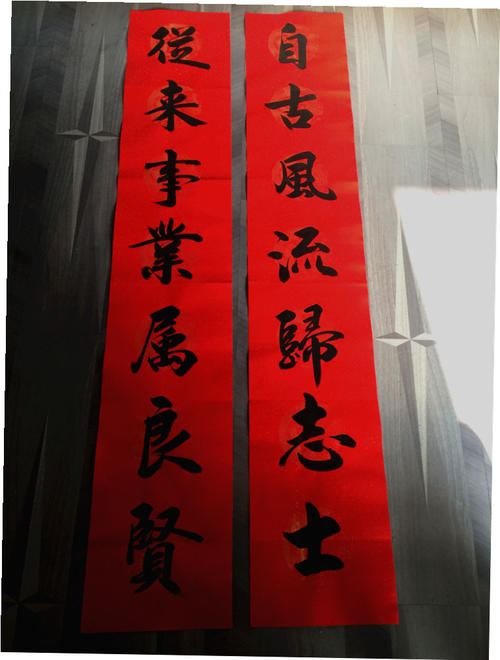 自古風流歸志士
従来事業属良賢